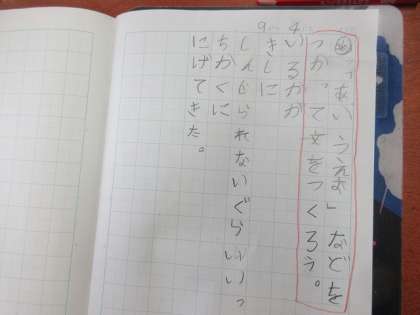 め「あいうえお」などを
つかって文をつくろう。
いるかが
きしに
しんじられないぐらいいっ
ちかくに
にげてきた。